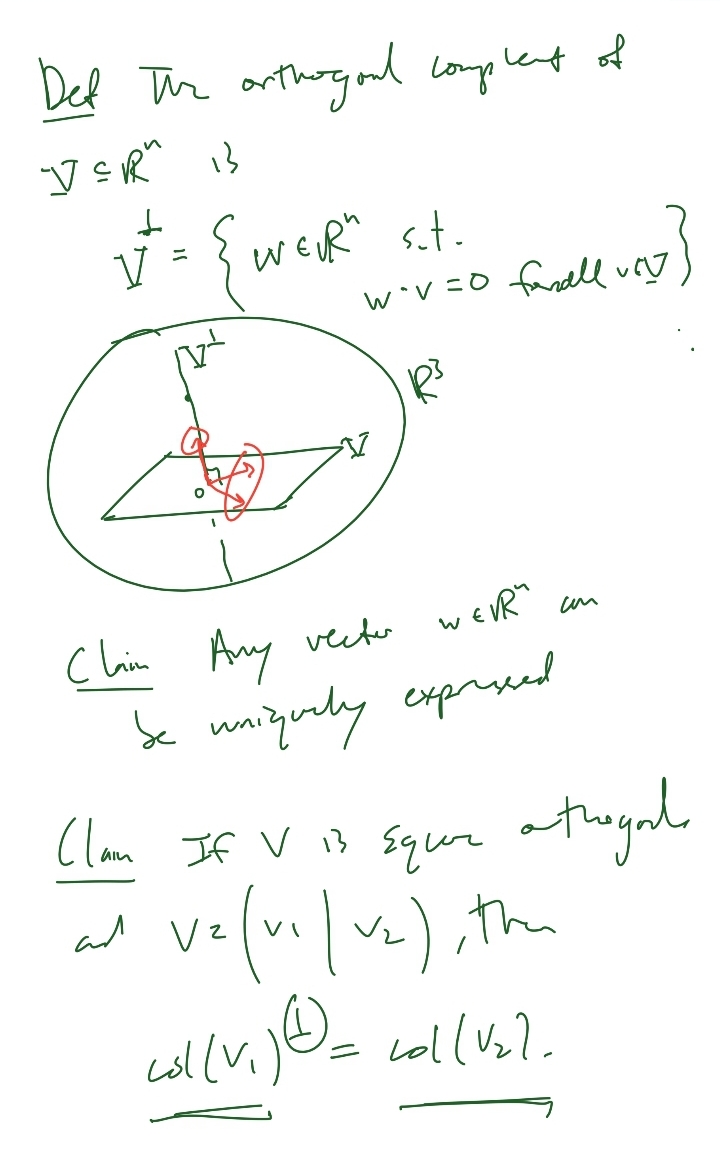 Def The orthogonal complement of
V ⊆ ℝⁿ is
V^⊥ = { w ∈ ℝⁿ s.t.
w · v = 0 for all v ∈ V }
V^⊥
ℝ³
V
0
Claim Any vector w ∈ ℝⁿ can
be uniquely expressed
Claim If V is square orthogonal
and V = ( V₁ | V₂ ), then
col(V₁)^⊥ = col(V₂).